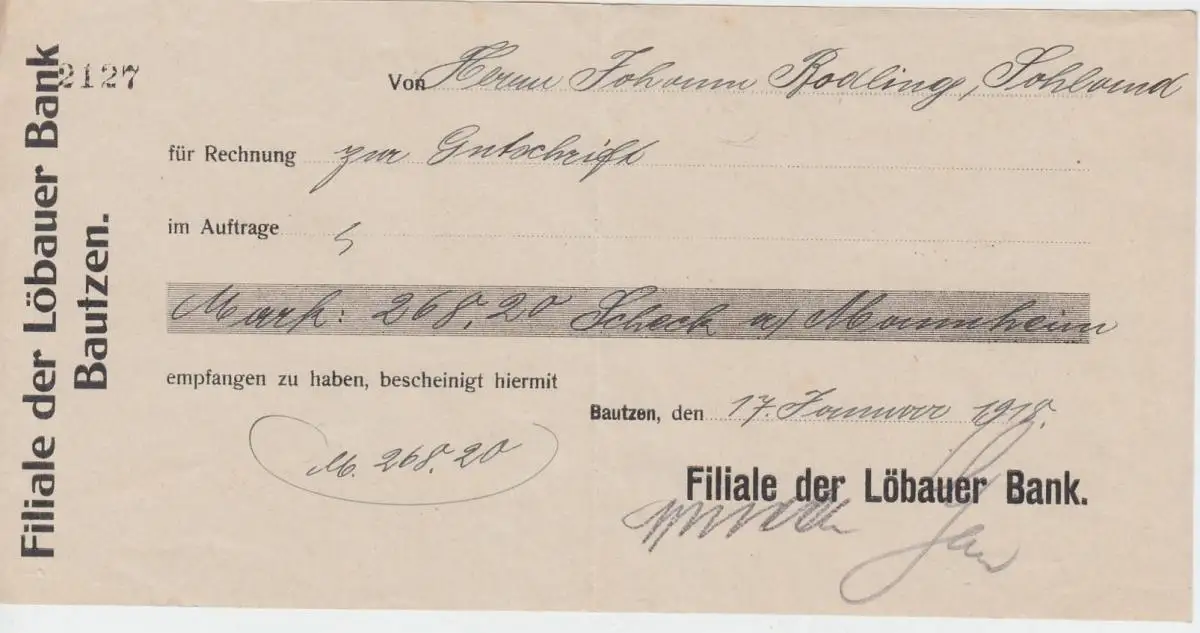 Filiale der Löbauer Bank
Bautzen.
2127
Von Herrn Johann Rodling, Sohland
für Rechnung zur Gutschrift
im Auftrage
Mark: 268,20 Scheck a/ Mannheim
empfangen zu haben, bescheinigt hiermit
Bautzen, den 17. Januar 1918.
M. 268,20
Filiale der Löbauer Bank.